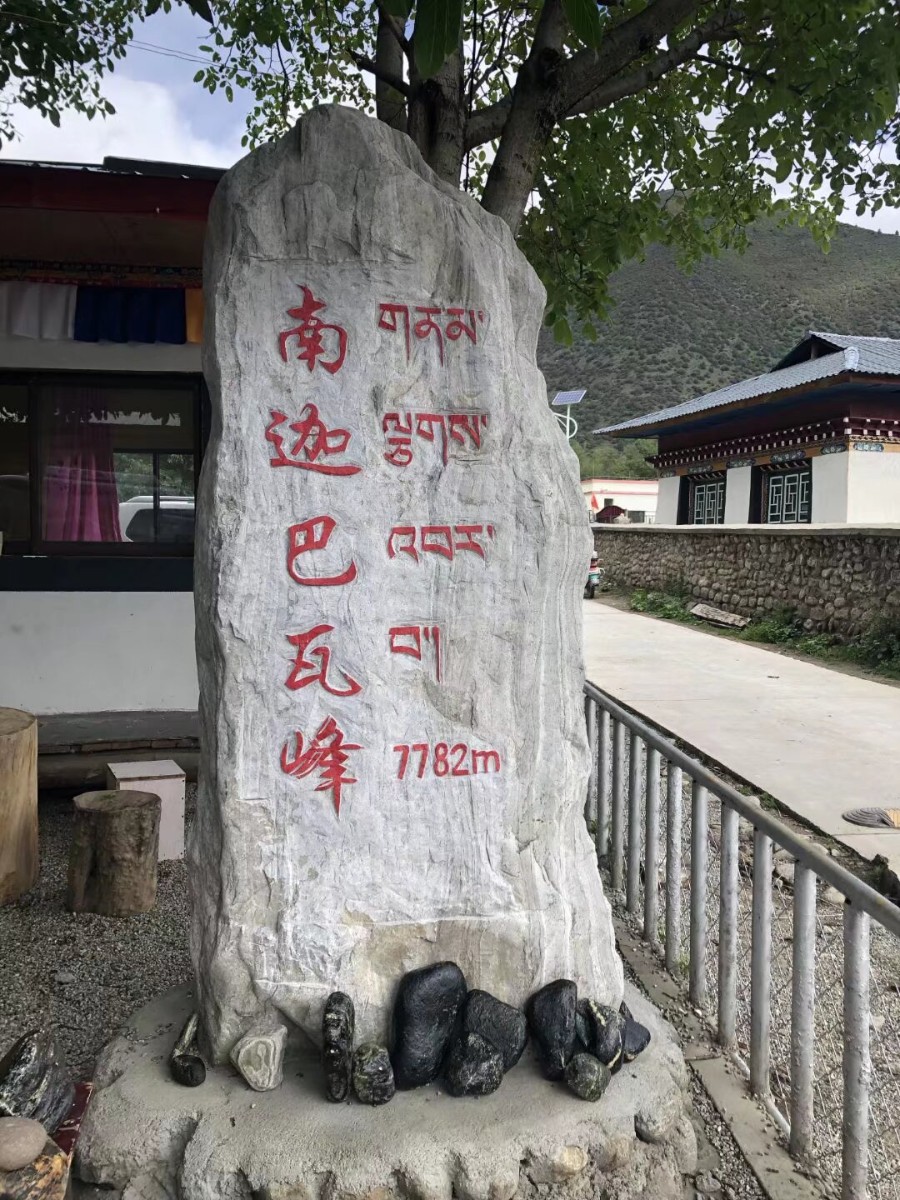 南迦巴瓦峰
གནམ་
ལྕགས་
འབར་
བ།
7782m